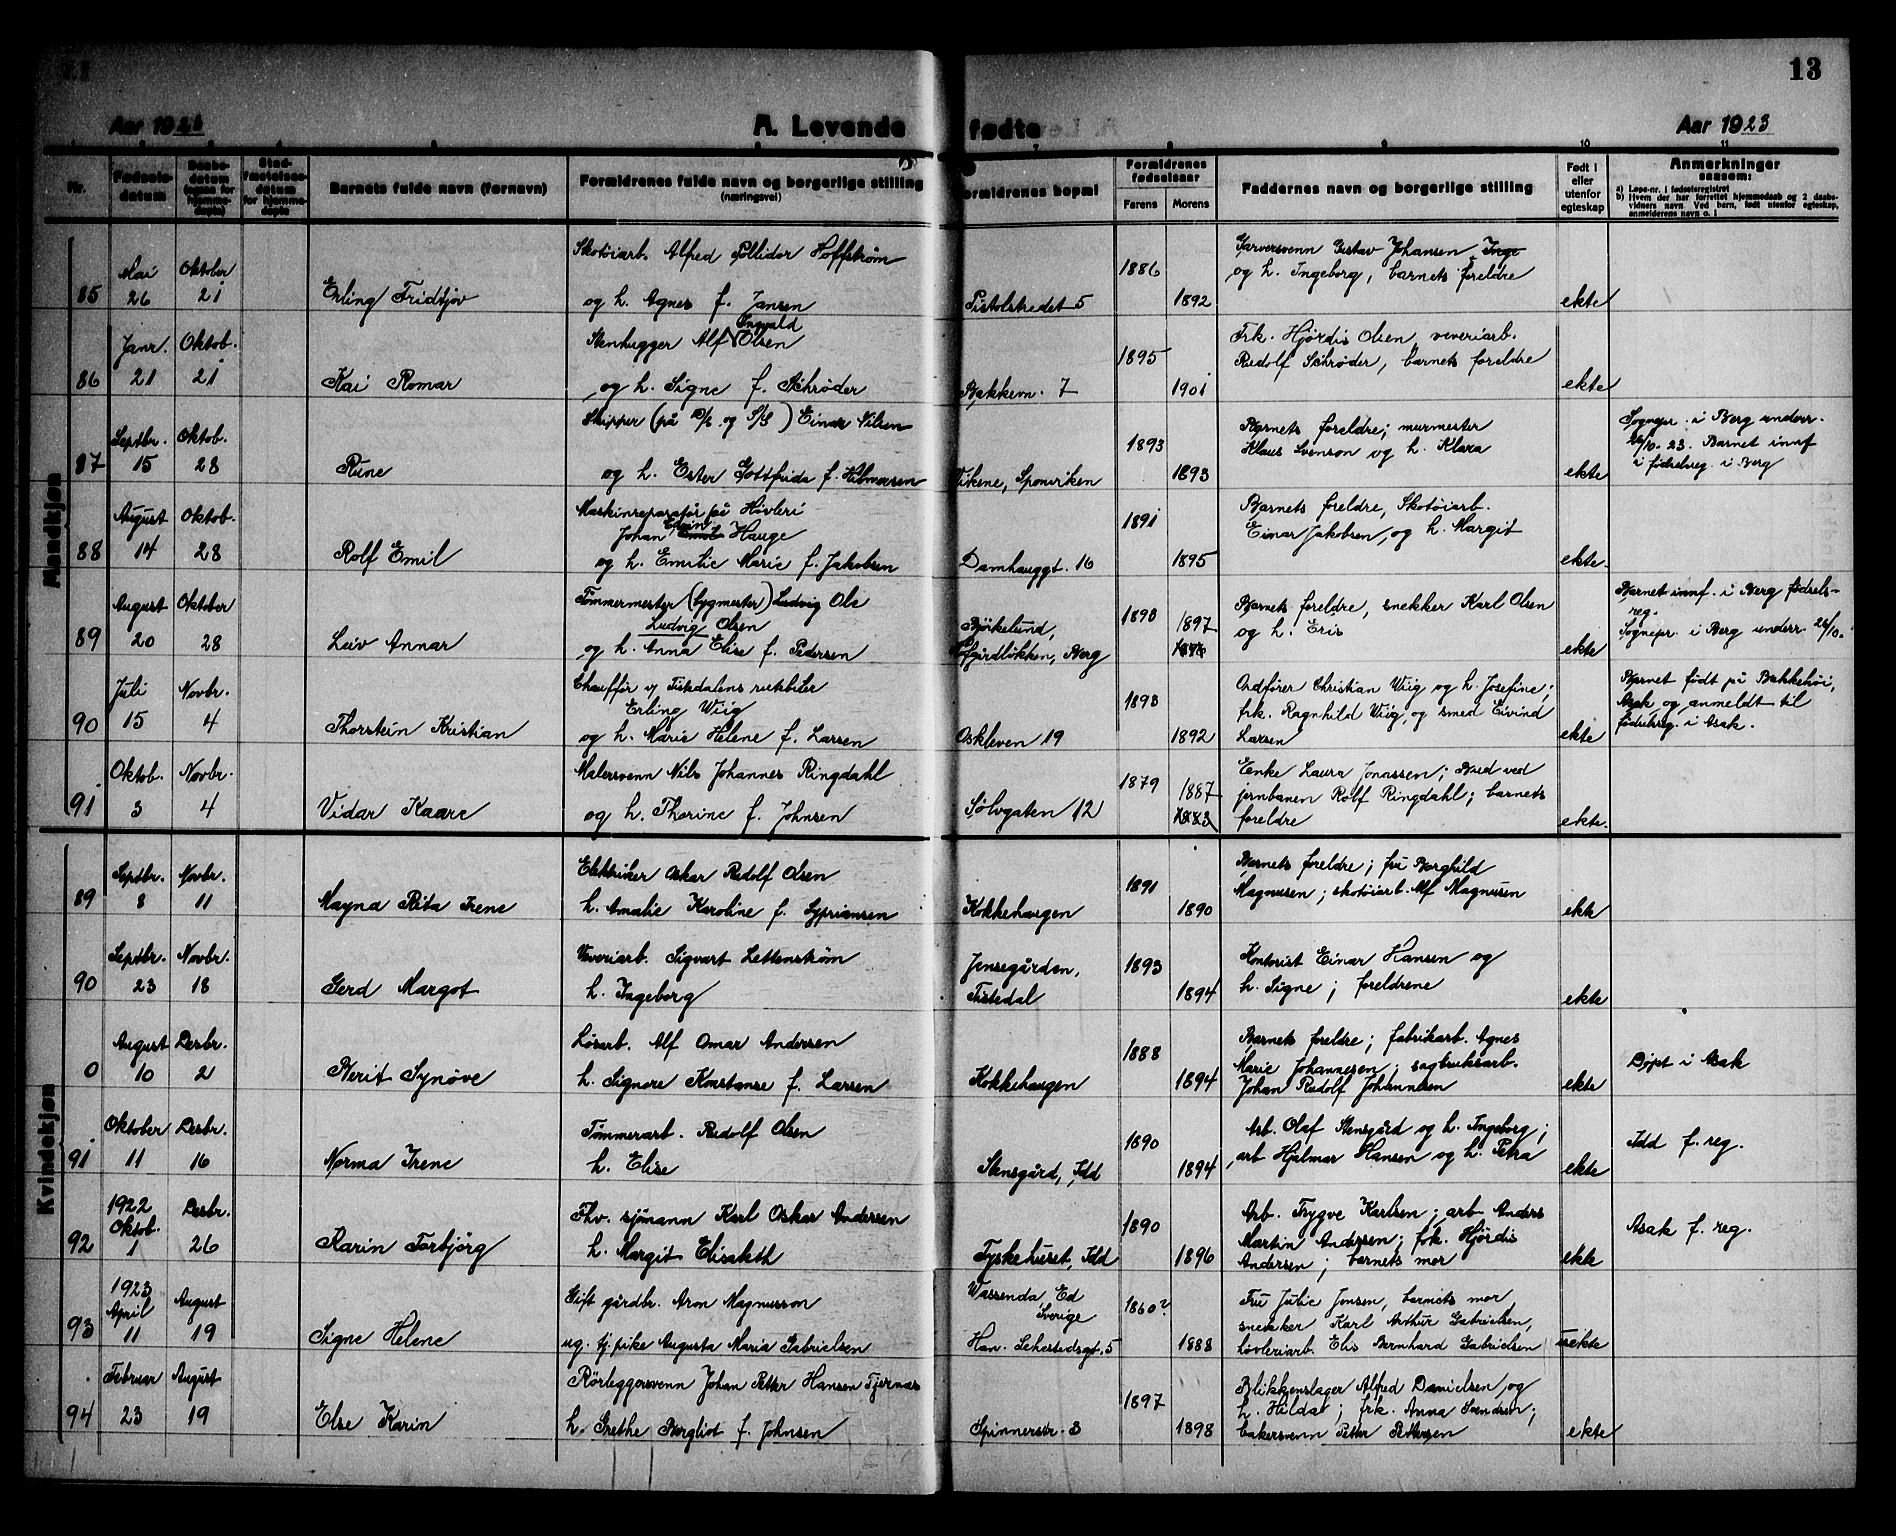 13
Aar 1923
A. Levende fødte
Aar 1923
Nr.
Fødsels-
datum
Daabs-
datum
Stad-
fæstelses-
datum
for hjemme-
døpte
Barnets fulde navn (fornavn)
Forældrenes fulde navn og borgerlige stilling
(næringsvei)
Forældrenes bopæl
Forældrenes
fødselsaar
Farens
Morens
Faddernes navn og borgerlige stilling
Født i
eller
utenfor
egteskap
Anmerkninger
saasom:
a) Løpe-nr. i fødselsregistret
b) Hvem der har forrettet hjemmedaab og 2 daabs-
vidners navn. Ved barn, født utenfor egteskap,
anmelderens navn o. l
10
11
Mandkjøn
85
Mai
26
Oktober
21
Erling Fridtjov
Skotöiarb. Alfred Pollidor Hoffstrøm
og h. Agnes f. Jansen
Pistolstredet 5
1886
1892
Garversvenn Gustav Johansen Inge
og h. Ingeborg, barnets foreldre
ekte
86
Janr.
21
Oktob.
21
Kai Romar
Stenhugger Alf Ingvald Olsen
og h. Signe f. Schrøder
Bakkevn. 7
1895
1901
Frk. Hjørdis Olsen, veveriarb.
Rudolf Schrøder, barnets foreldre
ekte
87
Septbr.
15
Oktob.
28
Rune
Skipper (på D/S og S/S) Einar Nilsen
og h. Ester Gottfrida f. Hilmersen
Vikene, Sponviken
1893
1893
Barnets foreldre; murmester
Klaus Svenson og h. Klara
ekte
Sognepr. i Berg underr.
26/10. 23. Barnet innf
i fødselsreg. i Berg
88
August
14
Oktob.
28
Rolf Emil
Maskinreparatør på Hövleri
Johan Edvin Emil Hauge
og h. Emilie Marie f. Jakobsen
Damhauggt. 16
1891
1895
Barnets foreldre, Skotöiarb.
Einar Jakobsen, og h. Margit
ekte
89
August
20
Oktober
28
Leiv Annar
Tömmermester (bygmester) Ludvig Ole
Ludvig Olsen
og h. Anna Elise f. Pedersen
Björkelund,
Berg
1898
1897
Barnets foreldre, snekker Karl Olsen
og h. Eris
ekte
Barnet innf. i Berg fødsels-
reg.
Sognepr. i Berg underr. 26/10.
90
Juli
15
Novbr.
4
Thorstein Kristian
Chauffør v/ Tistedalens rutebiler
Erling Wiig
og h. Marie Helene f. Larsen
Oskleven 19
1893
1892
Ordfører Christian Wiig og h. Josefine;
frk. Ragnhild Wiig, og smed Eivind
Larsen
ekte
Barnet født på Bakkehöi,
Asak og anmeldt til
födselsreg. i Asak.
91
Oktob.
3
Novbr.
4
Vidar Kaare
Malersvenn Nils Johannes Ringdahl
og h. Thorine f. Johnsen
Sølvgaten 12
1879
1887
1883
Enke Laura Jonassen; Bud ved
jernbanen Rolf Ringdahl; barnets
foreldre
ekte.
Kvindekjøn
89
Septbr.
8
Novbr.
11
Mayna Rita Irene
Elektriker Oskar Rudolf Olsen
h. Amalie Karoline f. Sypriansen
Kokkehaugen
1891
1890
Barnets foreldre; fru Borghild
Magnusen; skotöiarb. Alf Magnusen
ekte
90
Septbr.
23
Novbr.
18
Gerd Margot
Veveriarb. Sigvart Lettenstrøm
h. Ingeborg
Jensegården,
Tistedal
1893
1894
Kontorist Einar Hansen og
h. Signe; foreldrene
ekte
0
August
10
Desbr.
2
Berit Synöve
Lösarb. Alf Omar Andersen
h. Signore Konstanse f. Larsen
Kokkehaugen
1888
1894
Barnets foreldre; fabrikarb. Agnes
Marie Johannesen; sagbruksarb.
Johan Rudolf Johannesen
ekte
Döpt i Asak
91
Oktober
11
Desbr.
16
Norma Irene
Tömmerarb. Rudolf Olsen
h. Elise
Stensgård, Idd
1890
1894
Arb. Olaf Stensgård og h. Ingeborg;
arb Hjalmar Hansen og h. Petra
ekte
Idd f. reg.
92
1922
Oktob.
1
Desbr.
26
Karin Torbjörg
Fhv. sjömann Karl Oskar Andersen
h. Margit Elisabeth
Tyskehuset, Idd
1890
1896
Arb. Trygve Karlsen; arb Anders
Martin Andersen; frk. Hjördis
Andersen; barnets mor
ekte
Asak f. reg.
93
1923
April
11
August
19
Signe Helene
Gift gårdbr. Aron Magnusson
ug. tj. pike Augusta Maria Gabrielsen
Wassenda Ed
Sverige
Han. Sehestedsgt. 5
1860?
1888
Fru Julie Jensen, barnets mor
snekker Karl Arthur Gabrielsen,
høvleriarb. Elis Bernhard Gabrielsen
uekte
94
Februar
23
August
19
Else Karin
Rörleggersvenn Johan Petter Hansen Tjernæs
h. Grethe Bergliot f. Johnsen
Spinnerstr. 3
1897
1898
Blikkenslager Alfred Danielsen, og
h. Hilda; frk. Anna Svendsen;
bakersvenn Petter Pettersen
ekte